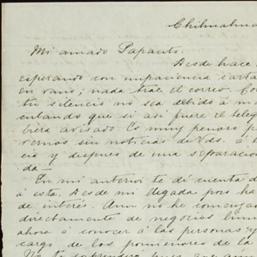 Chihuahua
Mi amado Papaito:
Desde hace
esperando con impaciencia carta
en vano; nada trae el correo.
tu silencio no sea debido á
que si así fuere el
biera avisado. Es muy penoso
vernos sin noticias de Vds. á
cio y despues de una separacion
da.
En mi anterior te dí cuenta d
á ésta. Desde mi llegada poco ha
de interés. Aun no he comenzad
directamente de negocios
ahora á conocer á las personas y
cargo de los pormenores de la